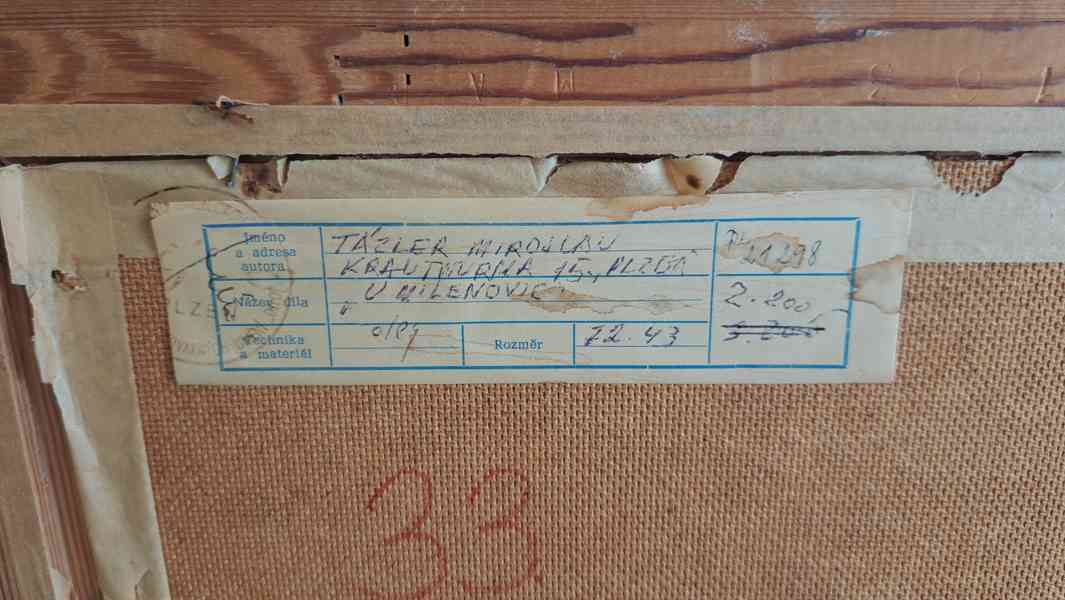 Jméno
a adresa
autora
TÁZLER MIROSLAV
KRAUTWURMA 15, PLZEŇ
21 298
Název díla
U MILENOVIC
2.200,-
Technika
a materiál
olej
Rozměr
72.43
3.200
LZE
33